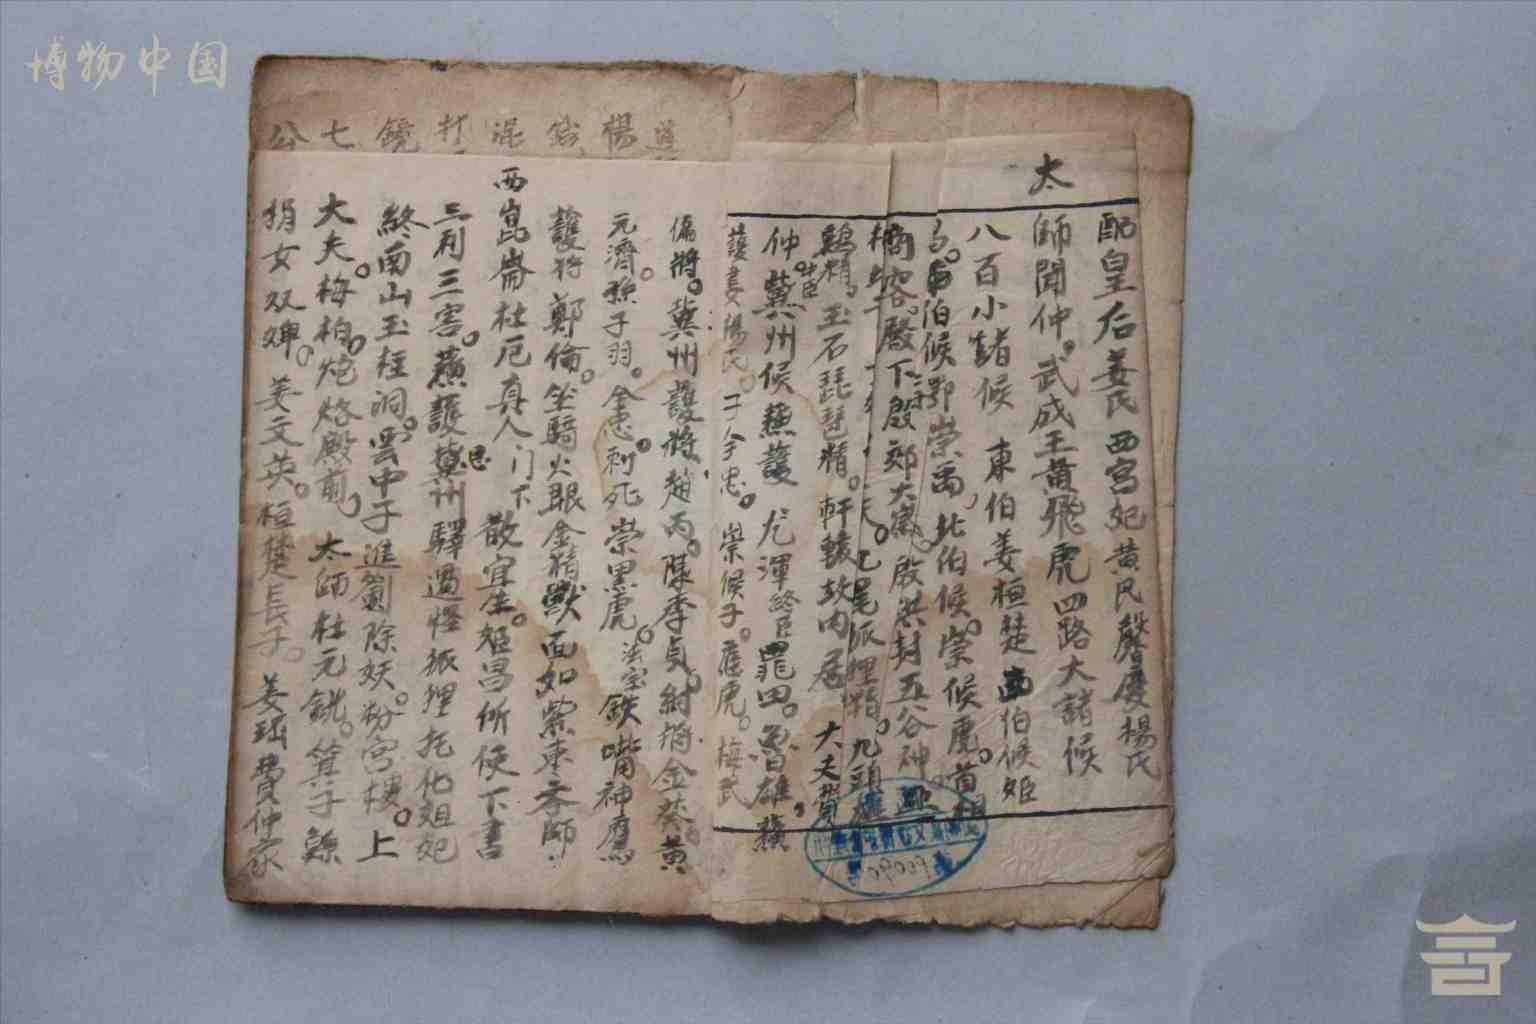 博物中国
太
配皇后姜氏 西宫妃黄氏 馨慶楊氏
師聞仲。武成王黄飛虎四路大諸候
八百小諸候 東伯姜桓楚 西伯候姬
伯候鄂崇禹，北伯候崇候虎。首相
商容。殿下殷郊大歲。殷洪封五谷神。
尾狐狸精。九頭
鷄精。玉石琵琶精。軒轅坟内居 大夫
仲 冀州候蘓護 尤渾 終臣罪田。魯雄
護妻楊氏。子全忠。崇候子。應虎。梅武
偏將。冀州護將趙丙。陳季貞。紂將金葵黄
元濟。孫子羽。全忠。刺死崇黑虎。法宝鉄嘴神鷹
護將鄭倫。坐騎火眼金精獸面如紫棗 師
西崑崙杜厄真人门下 散宜生。姬昌所使下書
三利三害。蘓護冀州 恩驛過怪狐狸托化妲妃
終南山玉柱洞。雲中子進劍除妖。粉宫樓。上
大夫梅柏。炮烙殿前。太師杜元銑。箕子
捐女双婢。姜文英。桓楚長子。姜环費仲家
道
楊
混
打
鏡
七
公